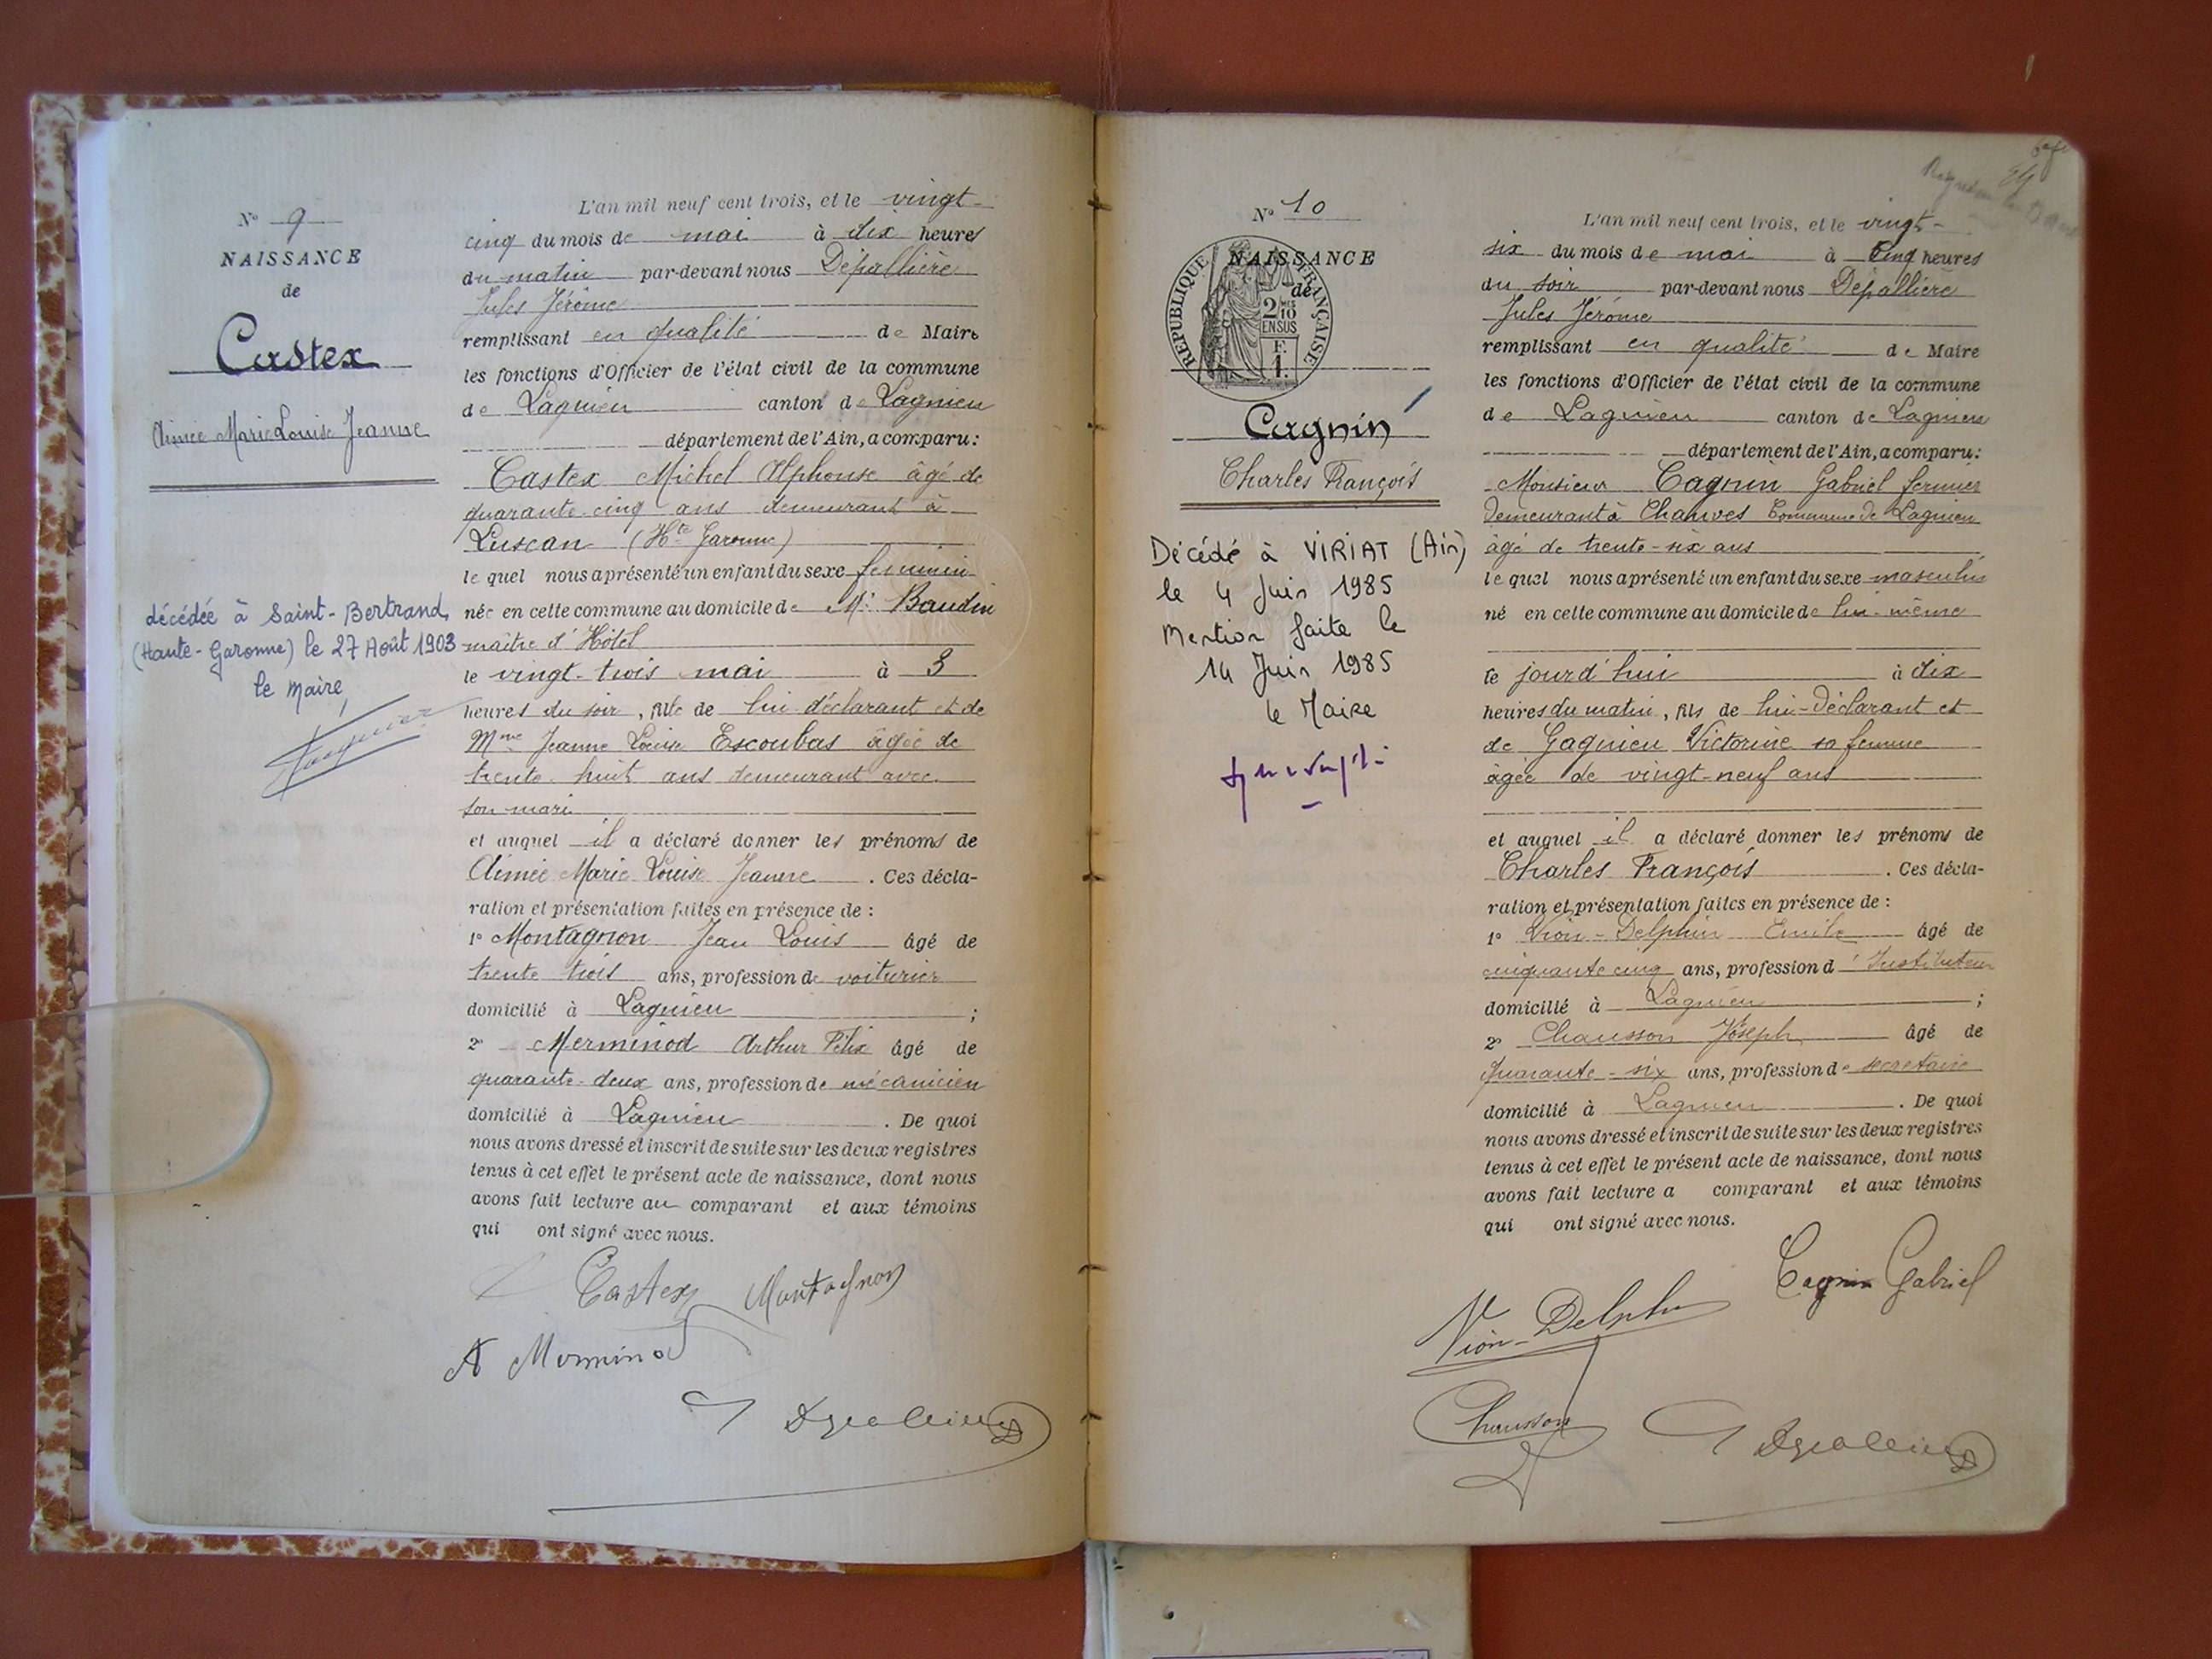 N° 9
NAISSANCE
de
Castex
Aimée Marie Louise Jeanne
décédée à Saint-Bertrand
(Haute-Garonne) le 27 Août 1903
le Maire,
L'an mil neuf cent trois, et le vingt-
cinq du mois de mai à dix heures
du matin par-devant nous Dépallière
Jules Jérôme
remplissant en qualité de Maire
les fonctions d'Officier de l'état civil de la commune
de Lagnieu canton de Lagnieu
département de l'Ain, a comparu :
Castex Michel Alphonse âgé de
quarante-cinq ans demeurant à
Luscan (Hte Garonne)
le quel nous a présenté un enfant du sexe féminin
née en cette commune au domicile de Mr Baudin
maître d'Hôtel
le vingt-trois mai à 3
heures du soir, fille de lui déclarant et de
Mme Jeanne Louise Escoubas âgée de
trente-huit ans demeurant avec
son mari
et auquel il a déclaré donner les prénoms de
Aimée Marie Louise Jeanne . Ces décla-
ration et présentation faites en présence de :
1° Montagnon Jean Louis âgé de
trente trois ans, profession de voiturier
domicilié à Lagnieu ;
2° Merminod Arthur Félix âgé de
quarante-deux ans, profession de mécanicien
domicilié à Lagnieu . De quoi
nous avons dressé et inscrit de suite sur les deux registres
tenus à cet effet le présent acte de naissance, dont nous
avons fait lecture au comparant et aux témoins
qui ont signé avec nous.
Castex Montagnon
A Merminod
N° 10
NAISSANCE
de
REPUBLIQUE FRANÇAISE
2 MES
10
EN SUS
F.
1.
Cagnin
Charles François
Décédé à VIRIAT (Ain)
le 4 Juin 1985
Mention faite le
14 Juin 1985
le Maire
L'an mil neuf cent trois, et le vingt-
six du mois de mai à cinq heures
du soir par-devant nous Dépallière
Jules Jérôme
remplissant en qualité de Maire
les fonctions d'Officier de l'état civil de la commune
de Lagnieu canton de Lagnieu
département de l'Ain, a comparu :
Monsieur Cagnin Gabriel fermier
demeurant à Charves Commune de Lagnieu
âgé de trente-six ans
le quel nous a présenté un enfant du sexe masculin
né en cette commune au domicile de lui-même
ce jourd'hui à dix
heures du matin, fils de lui-déclarant et
de Gagnieu Victorine sa femme
âgée de vingt-neuf ans
et auquel il a déclaré donner les prénoms de
Charles François . Ces décla-
ration et présentation faites en présence de :
1° Vion-Delphin Emile âgé de
cinquante cinq ans, profession d'Instituteur
domicilié à Lagnieu ;
2° Chausson Joseph âgé de
quarante-six ans, profession de secrétaire
domicilié à Lagnieu . De quoi
nous avons dressé et inscrit de suite sur les deux registres
tenus à cet effet le présent acte de naissance, dont nous
avons fait lecture a comparant et aux témoins
qui ont signé avec nous.
Cagnin Gabriel
Vion-Delphin
Chausson